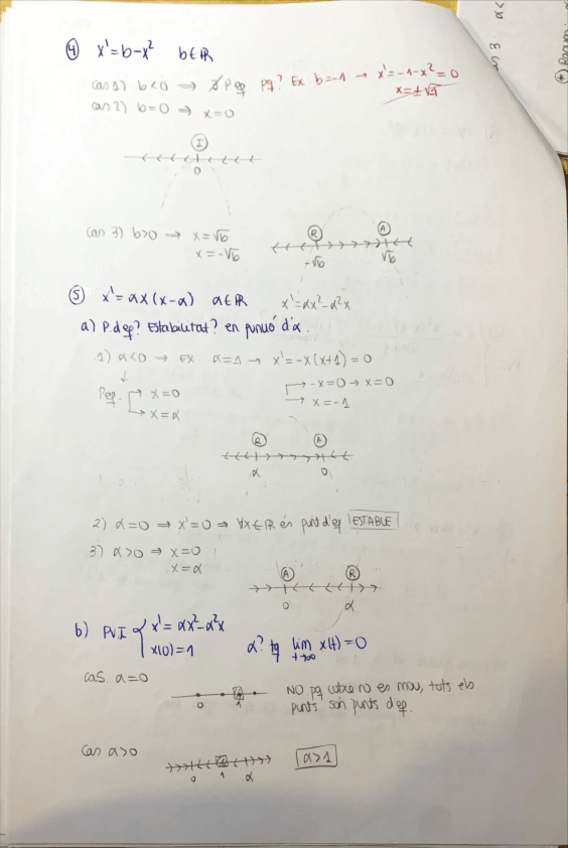 ④ x' = b-x² b∈ℝ
Cas 1) b<0 → ∄ P eq pq? Ex b=-1 → x'=-1-x²=0
x=±√-1
Cas 2) b=0 → x=0
I
0
Cas 3) b>0 → x=√b
x=-√b
R A
-√b √b
⑤ x'=αx(x-α) α∈ℝ x'=αx²-α²x
a) P.d'eq? Estabilitat? en funció d'α.
1) α<0 → Ex α=-1 → x'=-x(x+1)=0
↓
Peq. x=0
x=α
-x=0 → x=0
x=-1
R A
α 0
2) α=0 → x'=0 ⇒ ∀x∈ℝ és punt d'eq ESTABLE
3) α>0 ⇒ x=0
x=α
A R
0 α
b) PVI { x'=αx²-α²x
x(0)=1
α? tq lim x(t)=0
t→∞
Cas. α=0
0 1
NO pq es mou, tots els
punts són punts d'eq.
Cas α>0
0 1 α
α>1